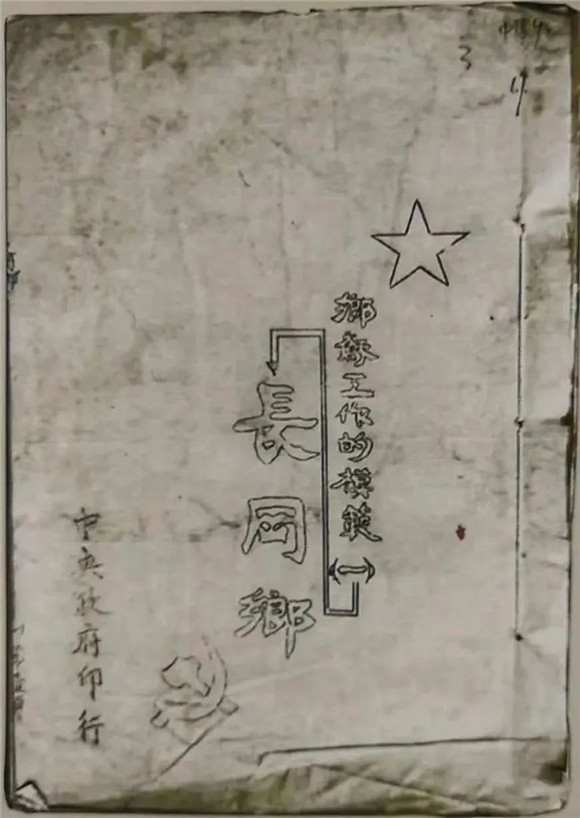 鄉蘇工作的模範(一)
長同鄉
中央政府印行